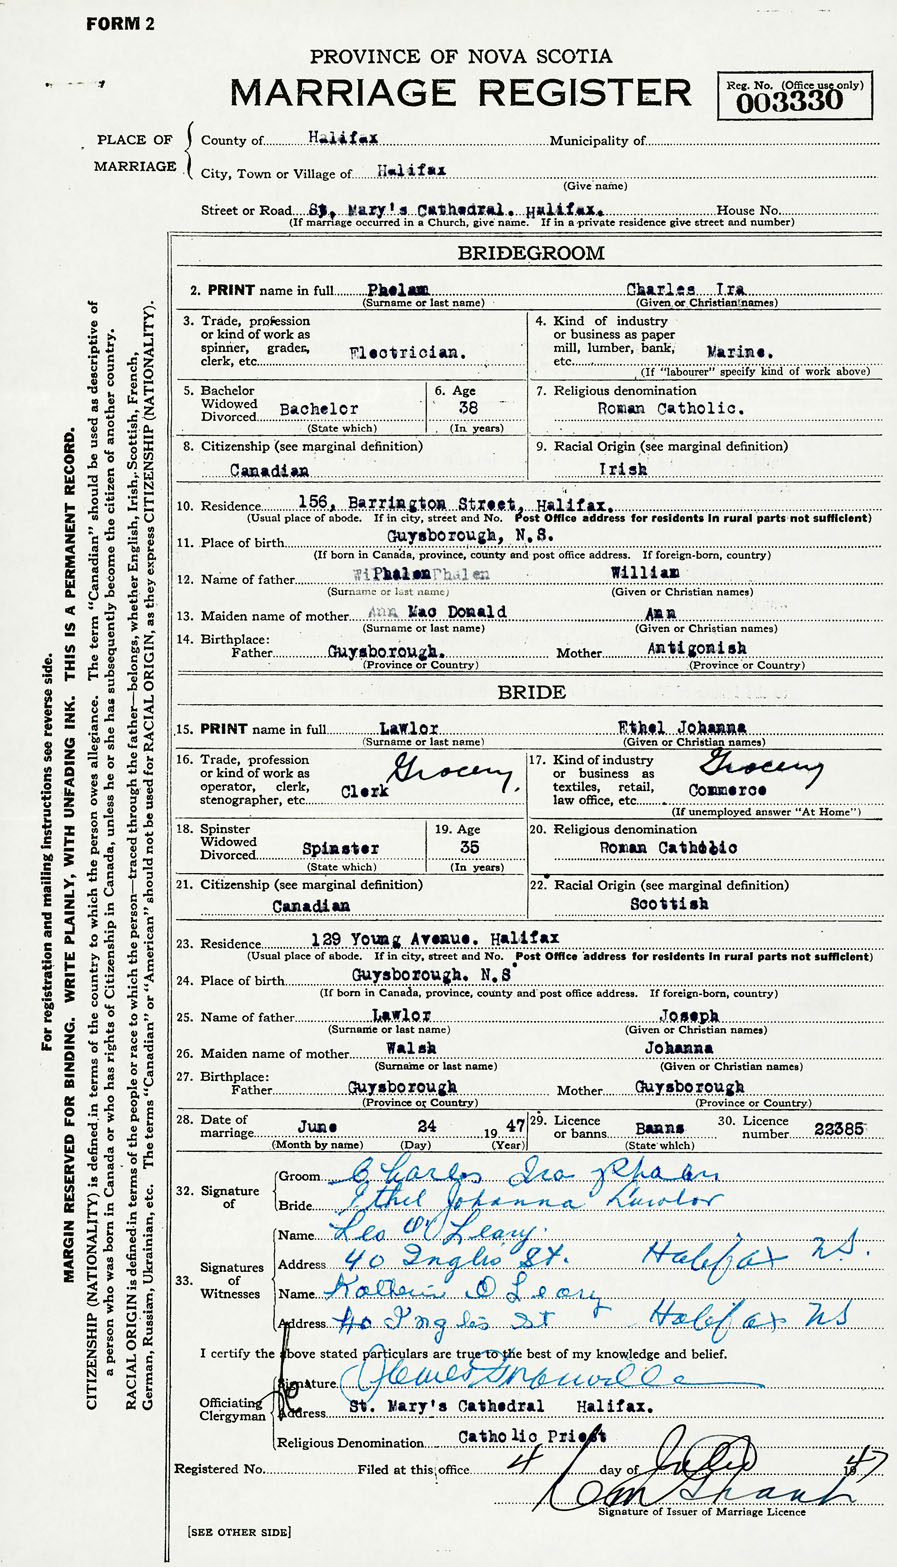 FORM 2
PROVINCE OF NOVA SCOTIA
MARRIAGE REGISTER
Reg. No. (Office use only)
003330
PLACE OF MARRIAGE
County of Halifax Municipality of
City, Town or Village of Halifax
(Give name)
Street or Road St. Mary's Cathedral. Halifax. House No.
(If marriage occurred in a Church, give name. If in a private residence give street and number)
BRIDEGROOM
2. PRINT name in full Phelan Charles Ira
(Surname or last name) (Given or Christian names)
3. Trade, profession or kind of work as spinner, grader, clerk, etc. Electrician.
4. Kind of industry or business as paper mill, lumber, bank, etc. Marine.
(If "labourer" specify kind of work above)
5. Bachelor Widowed Divorced Bachelor
(State which)
6. Age 38
(In years)
7. Religious denomination
Roman Catholic.
8. Citizenship (see marginal definition)
Canadian
9. Racial Origin (see marginal definition)
Irish
10. Residence 156, Barrington Street, Halifax.
(Usual place of abode. If in city, street and No. Post Office address for residents in rural parts not sufficient)
11. Place of birth Guysborough, N.S.
(If born in Canada, province, county and post office address. If foreign-born, country)
12. Name of father Phalen Phalen William
(Surname or last name) (Given or Christian names)
13. Maiden name of mother Ann Mac Donald Ann
(Surname or last name) (Given or Christian names)
14. Birthplace:
Father Guysborough. Mother Antigonish
(Province or Country) (Province or Country)
BRIDE
15. PRINT name in full Lawlor Ethel Johanna
(Surname or last name) (Given or Christian names)
16. Trade, profession or kind of work as operator, clerk, stenographer, etc. Clerk Grocery,
17. Kind of industry or business as textiles, retail, law office, etc. Commerce Grocery
(If unemployed answer "At Home")
18. Spinster Widowed Divorced Spinster
(State which)
19. Age 35
(In years)
20. Religious denomination
Roman Catholic
21. Citizenship (see marginal definition)
Canadian
22. Racial Origin (see marginal definition)
Scottish
23. Residence 129 Young Avenue. Halifax
(Usual place of abode. If in city, street and No. Post Office address for residents in rural parts not sufficient)
24. Place of birth Guysborough. N.S.
(If born in Canada, province, county and post office address. If foreign-born, country)
25. Name of father Lawlor Joseph
(Surname or last name) (Given or Christian names)
26. Maiden name of mother Walsh Johanna
(Surname or last name) (Given or Christian names)
27. Birthplace:
Father Guysborough Mother Guysborough
(Province or Country) (Province or Country)
28. Date of marriage June 24 1947
(Month by name) (Day) (Year)
29. Licence or banns Banns
(State which)
30. Licence number 22385
32. Signature of
Groom Charles Ira Phalen
Bride Ethel Johanna Lawlor
33. Signatures of Witnesses
Name Leo O'Leary.
Address 40 Inglis St. Halifax NS.
Name O Leary
Address 40 Inglis St Halifax NS
I certify the above stated particulars are true to the best of my knowledge and belief.
Officiating Clergyman
Signature
Address St. Mary's Cathedral Halifax.
Religious Denomination Catholic Priest
Registered No. Filed at this office 4 day of July 1947
Signature of Issuer of Marriage Licence
[SEE OTHER SIDE]
For registration and mailing instructions see reverse side.
MARGIN RESERVED FOR BINDING. WRITE PLAINLY, WITH UNFADING INK. THIS IS A PERMANENT RECORD.
CITIZENSHIP (NATIONALITY) is defined in terms of the country to which the person owes allegiance. The term "Canadian" should be used as descriptive of
a person who was born in Canada or who has rights of Citizenship in Canada, unless he or she has subsequently become the citizen of another country.
RACIAL ORIGIN is defined in terms of the people or race to which the person—traced through the father—belongs, whether English, Irish, Scottish, French,
German, Russian, Ukrainian, etc. The terms "Canadian" or "American" should not be used for RACIAL ORIGIN, as they express CITIZENSHIP (NATIONALITY).